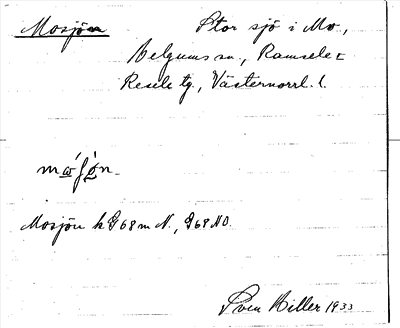 Mosjön
Stor sjö i Mo,
Helgums sn, Ramsele o
Resele tg., Västernorrl. l.
mώʃø̀n
Mosjön k G68 m N., G68 NO.
Sven Hiller 1933